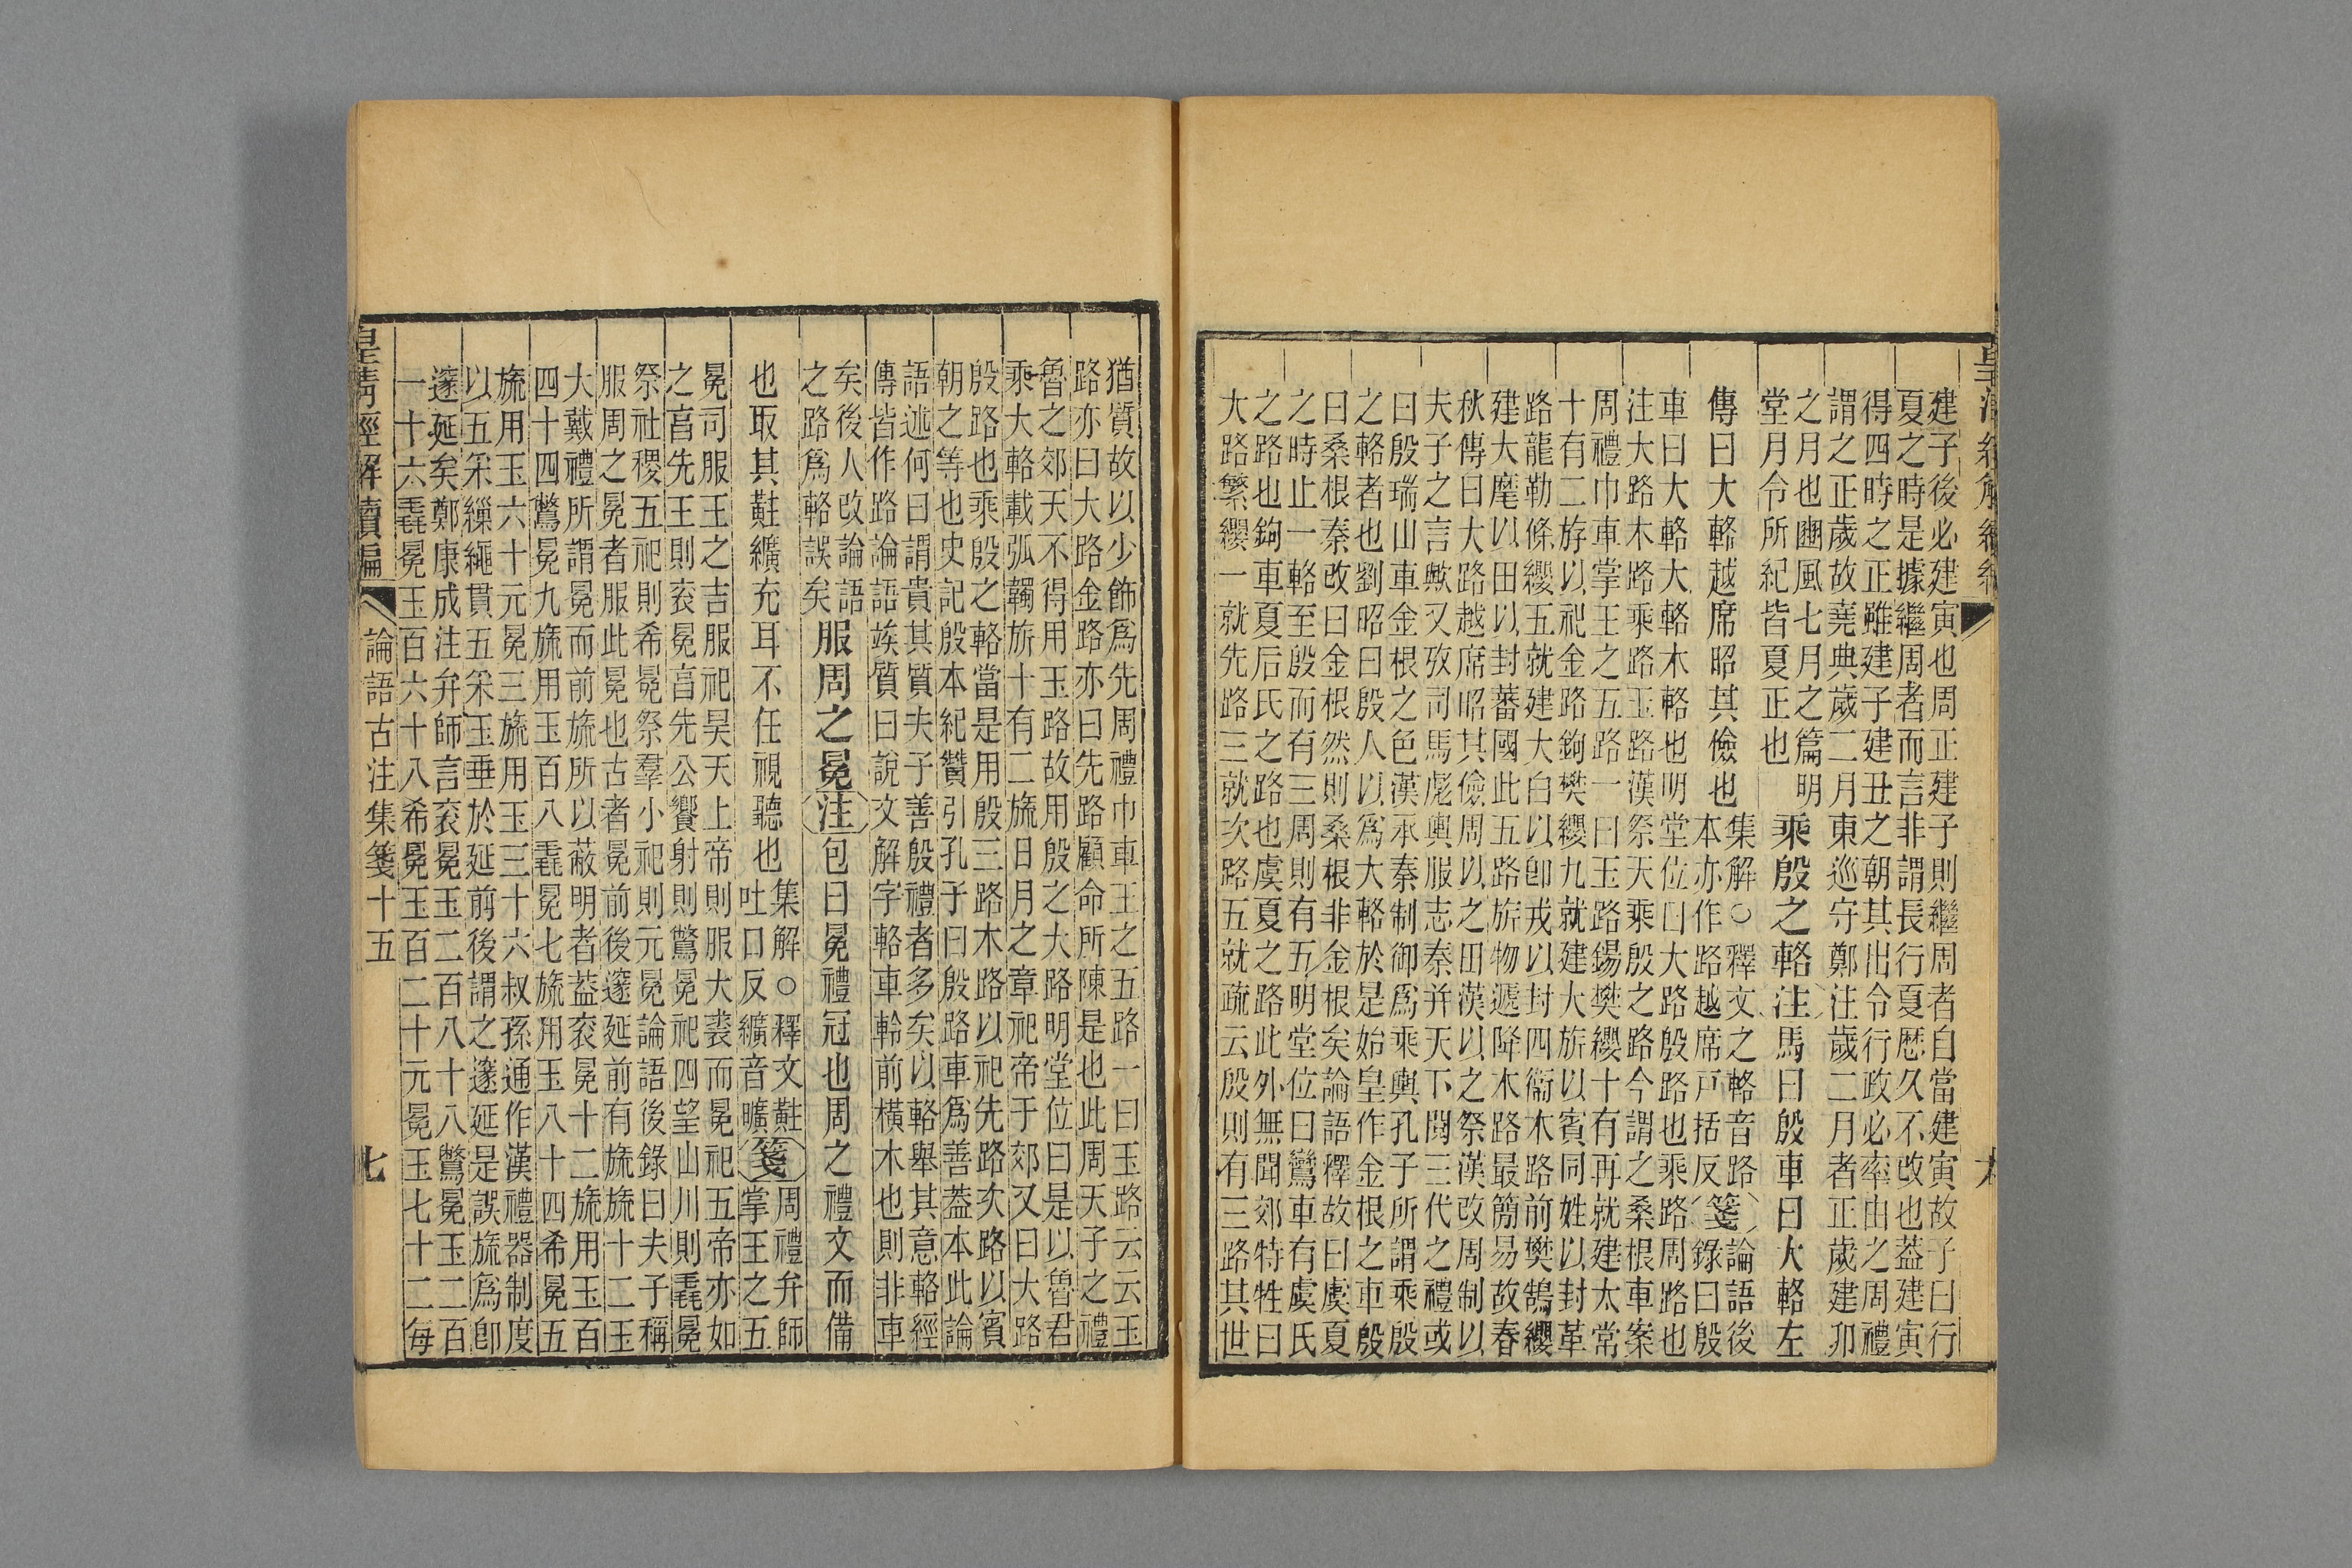 建子後必建寅也周正建子則繼周者自當建寅故子曰行
夏之時是據繼周者而言非謂長行夏厯久不改也葢建寅
得四時之正雖建子建丑之朝其出令行政必率由之周禮
謂之正歲故堯典歲二月東巡守鄭注歲二月者正歲建卯
之月也豳風七月之篇明
堂月令所紀皆夏正也
乘殷之輅注馬曰殷車曰大輅左
傳曰大輅越席昭其儉也
集解○釋文之輅音路
本亦作路越席戸括反
箋
論語後
錄曰殷
車曰大輅大輅木輅也明堂位曰大路殷路也乘路周路也
注大路木路乘路玉路漢祭天乘殷之路今謂之桑根車案
周禮巾車掌王之五路一曰玉路鍚樊纓十有再就建太常
十有二斿以祀金路鉤樊纓九就建大旂以賓同姓以封革
路龍勒條纓五就建大白以卽戎以封四衞木路前樊鵠纓
建大麾以田以封蕃國此五路旂物遞降木路最簡易故春
秋傳曰大路越席昭其儉周以之田漢以之祭漢改周制以
夫子之言歟又攷司馬彪輿服志秦并天下閱三代之禮或
曰殷瑞山車金根之色漢承秦制御爲乘輿孔子所謂乘殷
之輅者也劉昭曰殷人以爲大輅於是始皇作金根之車殷
曰桑根秦改曰金根然則桑根非金根矣論語釋故曰虞夏
之時止一輅至殷而有三周則有五明堂位曰鸞車有虞氏
之路也鉤車夏后氏之路也虞夏之路此外無聞郊特牲曰
大路繁纓一就先路三就次路五就疏云殷則有三路其世
猶質故以少飾爲先周禮巾車王之五路一曰玉路云云玉
路亦曰大路金路亦曰先路顧命所陳是也此周天子之禮
魯之郊天不得用玉路故用殷之大路明堂位曰是以魯君
乘大輅載弧韣旂十有二旒日月之章祀帝于郊又曰大路
殷路也乘殷之輅當是用殷三路木路以祀先路次路以賓
朝之等也史記殷本紀贊引孔子曰殷路車爲善葢本此論
語述何曰謂貴其質夫子善殷禮者多矣以輅舉其意輅經
傳皆作路論語竢質曰說文解字輅車軨前橫木也則非車
矣後人改論語
之路爲輅誤矣
服周之冕注包曰冕禮冠也周之禮文而備
也取其黈纊充耳不任視聽也
集解○釋文黈
吐口反纊音曠
箋
周禮弁師
掌王之五
冕司服王之吉服祀昊天上帝則服大裘而冕祀五帝亦如
之亯先王則衮冕亯先公饗射則鷩冕祀四望山川則毳冕
祭社稷五祀則希冕祭羣小祀則元冕論語後錄曰夫子稱
服周之冕者服此冕也古者冕前後邃延前有旒旒十二玉
大戴禮所謂冕而前旒所以蔽明者葢衮冕十二旒用玉百
四十四鷩冕九旒用玉百八毳冕七旒用玉八十四希冕五
旒用玉六十元冕三旒用玉三十六叔孫通作漢禮器制度
以五采繅繩貫五采玉垂於延前後謂之邃延是誤旒爲卽
邃延矣鄭康成注弁師言衮冕玉二百八十八鷩冕玉二百
一十六毳冕玉百六十八希冕玉百二十元冕玉七十二每
皇淸經解續編
論語古注集箋十五
七